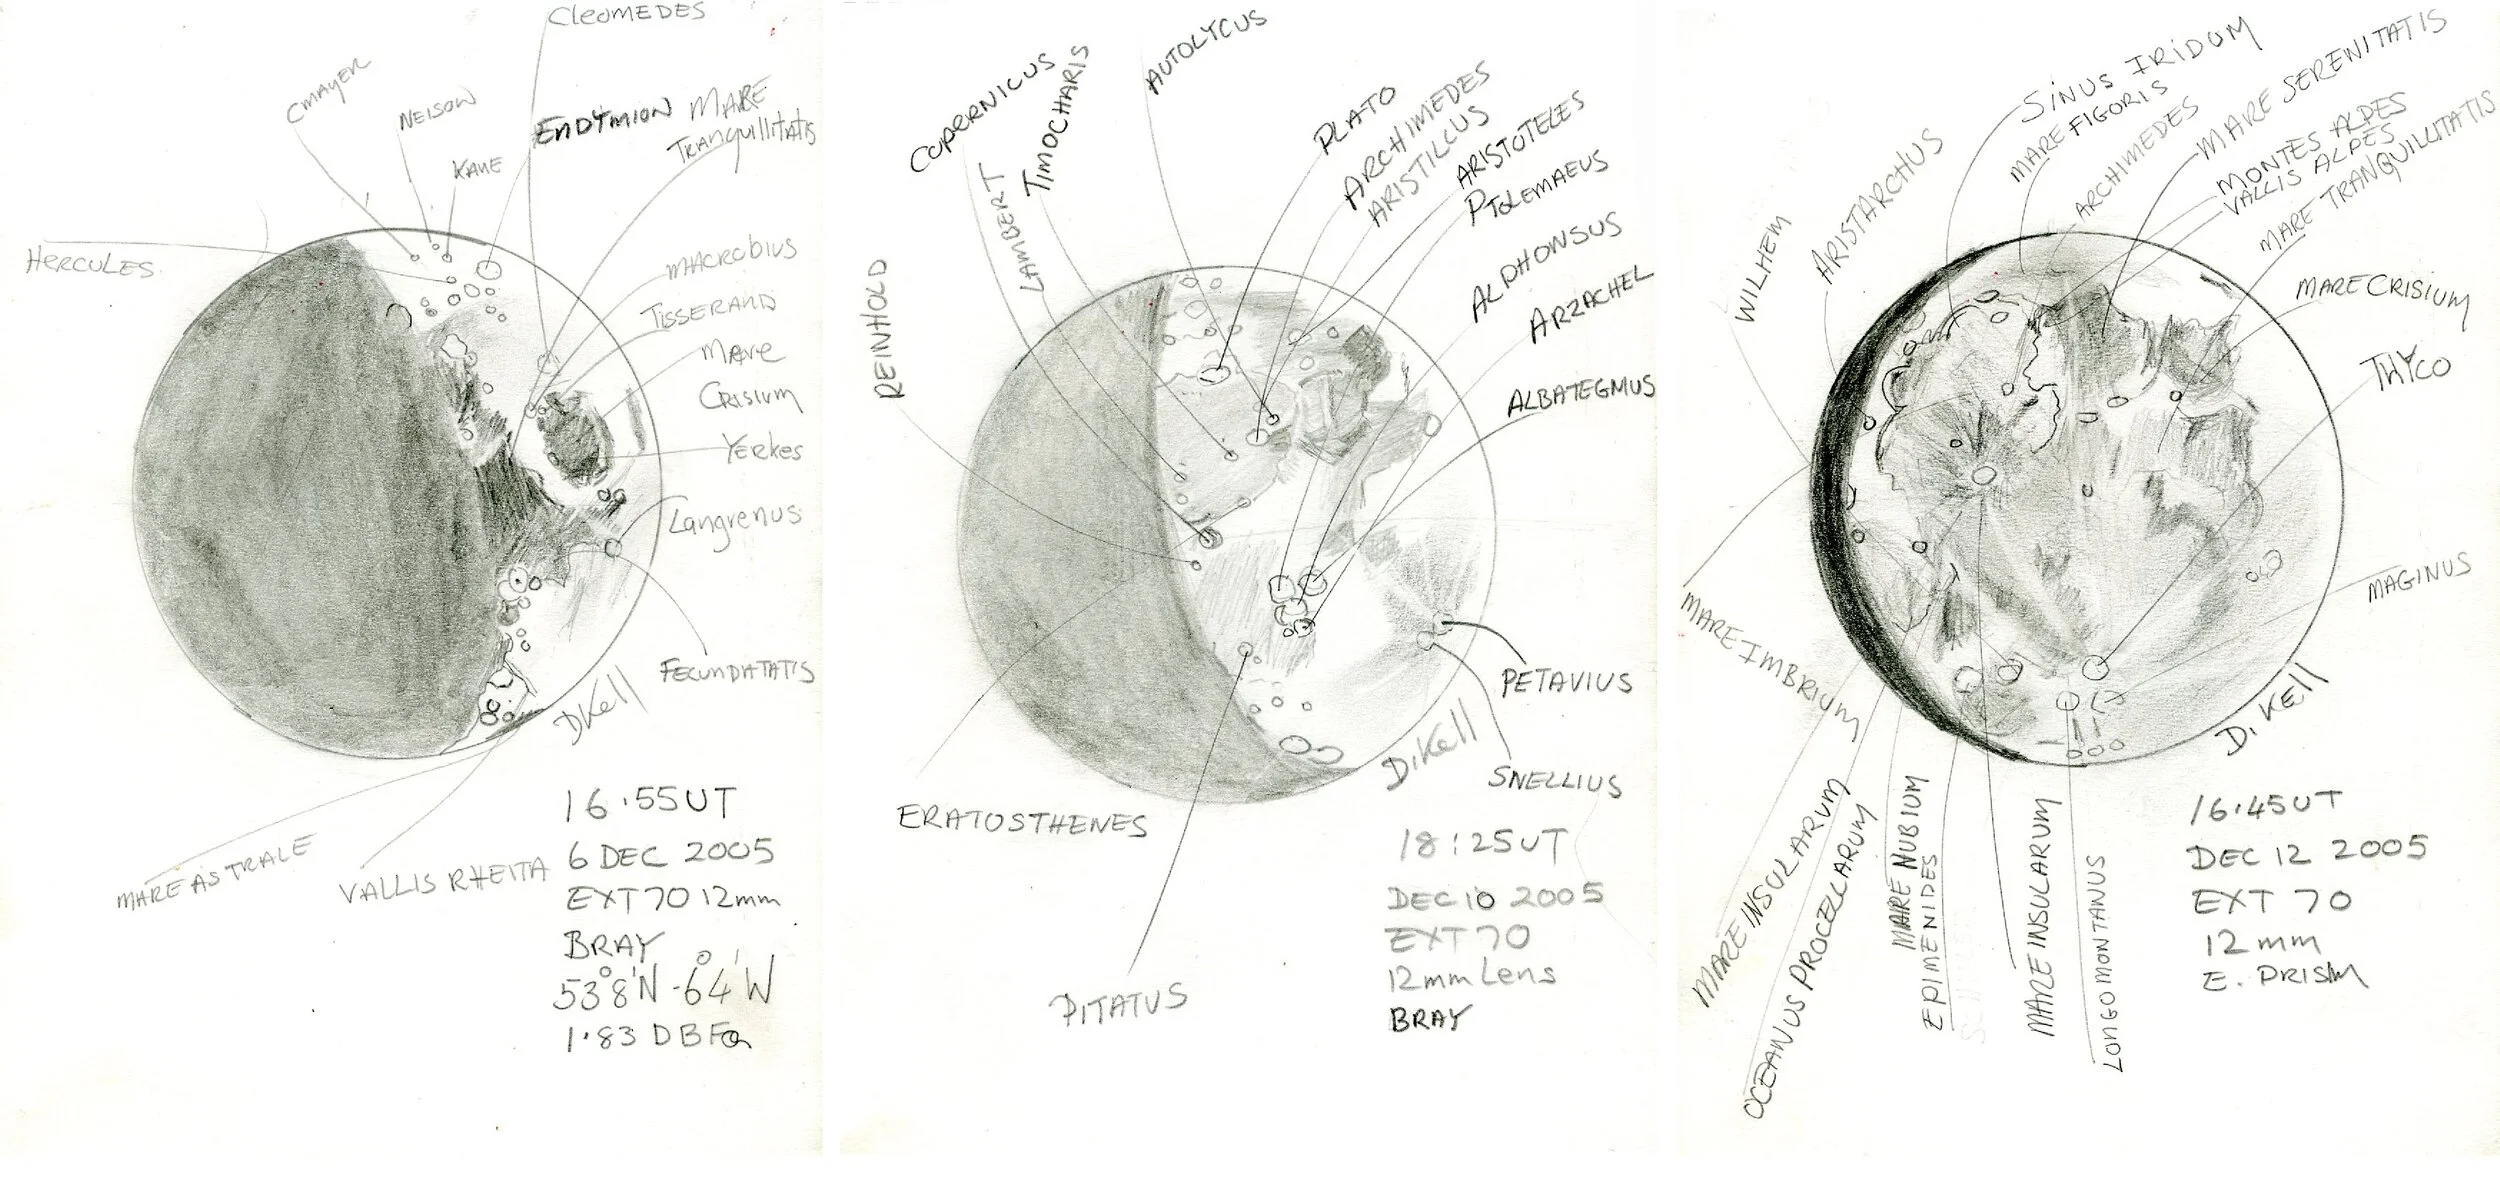 CLEOMEDES
CMAYER
NEISON
KANE
ENDYMION
MARE
TRANQUILLITATIS
HERCULES
MACROBIUS
TISSERAND
MARE
CRISIUM
YERKES
Langrenus
FECUNDATATIS
DKell
MARE ASTRALE
VALLIS RHEITA
16.55UT
6 DEC 2005
EXT 70 12mm
BRAY
53°8'N -6°4'W
COPERNICUS
TIMOCHARIS
AUTOLYCUS
LAMBERT
REINHOLD
PLATO
ARCHIMEDES
ARISTILLUS
ARISTOTELES
PTOLEMAEUS
ALPHONSUS
ARZACHEL
ALBATEGMUS
PETAVIUS
SNELLIUS
D.Kell
ERATOSTHENES
PITATUS
18:25UT
DEC 10 2005
EXT 70
12mm Lens
BRAY
WILHEM
ARISTARCHUS
SINUS IRIDUM
MARE FIGORIS
ARCHIMEDES
MARE SERENITATIS
MONTES ALPES
VALLIS ALPES
MARE TRANQUILLITATIS
MARE CRISIUM
THYCO
MAGINUS
MARE IMBRIUM
D. KEll
MARE INSULARUM
OCEANUS PROCELLARUM
MARE NUBIUM
EPIMENIDES
MARE INSULARUM
LONGOMONTANUS
16.45UT
DEC 12 2005
EXT 70
12mm
E. PRISM